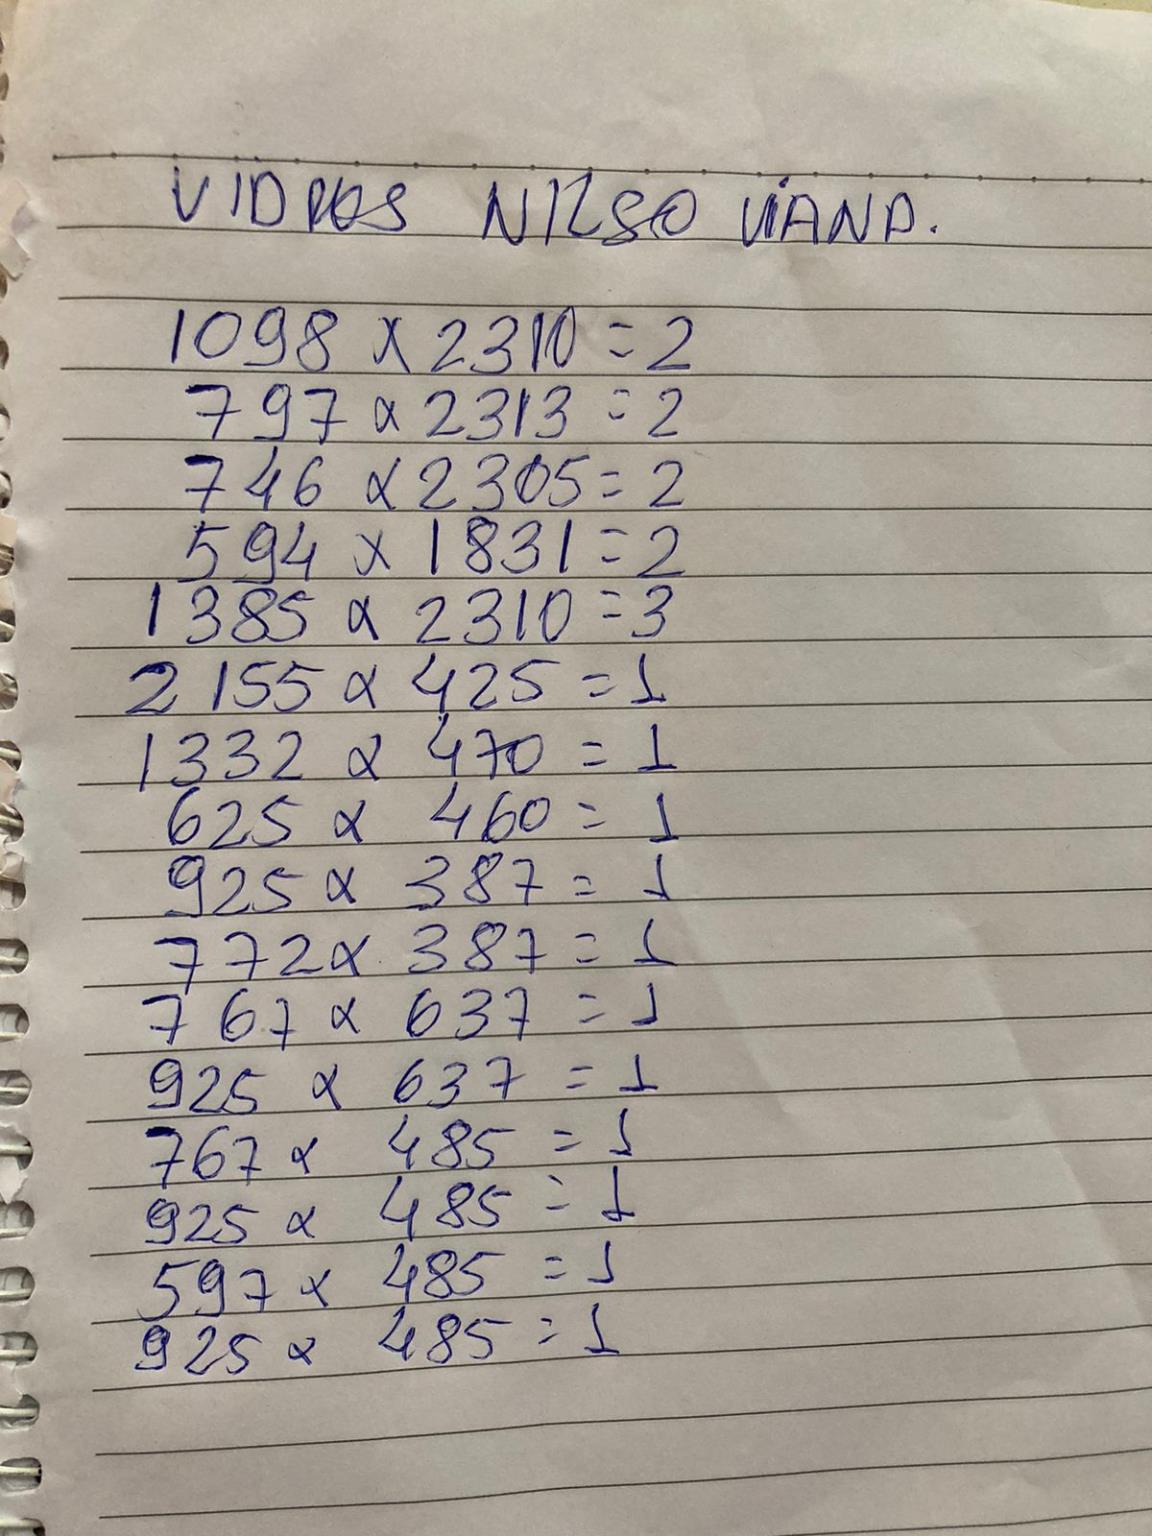 VIDROS NILSO VIANA.
1098 x 2310 = 2
797 x 2313 = 2
746 x 2305 = 2
594 x 1831 = 2
1385 x 2310 = 3
2155 x 425 = 1
1332 x 470 = 1
625 x 460 = 1
925 x 387 = 1
772 x 387 = 1
767 x 637 = 1
925 x 637 = 1
767 x 485 = 1
925 x 485 = 1
597 x 485 = 1
925 x 485 = 1